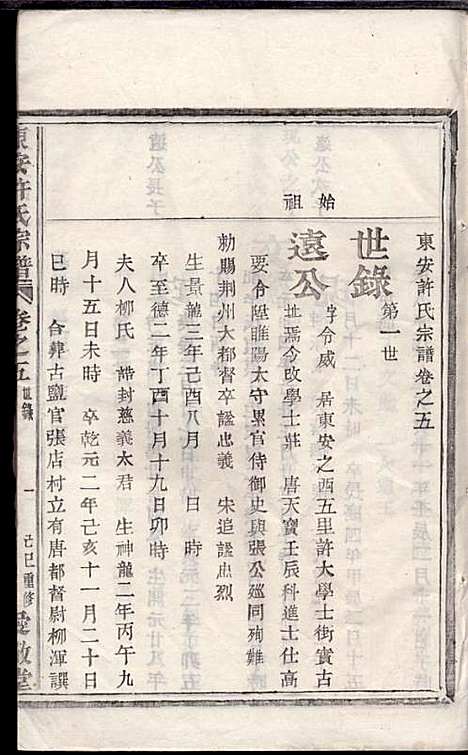 東安許氏宗譜卷之五
世錄
第一世
始祖
遠公
字令威 居東安之酉五里許大學士街實古
址焉今改學士莊 唐天寶壬辰科進士仕高
要令陞睢陽太守累官侍御史與張公廵同殉難
勅賜荆州大都督卒謚忠義 宋追謚忠烈
生景龍三年己酉八月 日 時
卒至德二年丁酉十月十九日卯時
夫八柳氏 誥封慈義太君 生神龍二年丙午九
月十五日未時 卒乾元二年己亥十一月二十日
巳時 合葬古鹽官張店村立有唐都督尉柳渾譔
東安許氏宗譜 卷之五 世錄 一 己巳重修